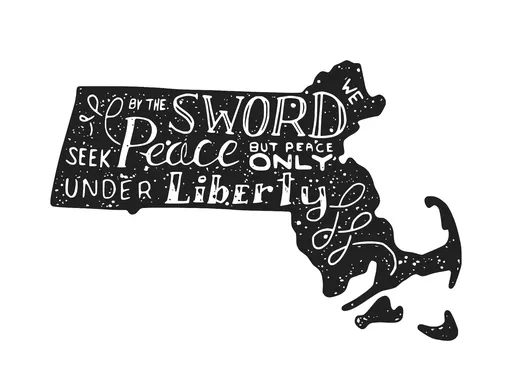 BY THE SWORD WE
SEEK Peace BUT PEACE
ONLY
UNDER Liberty